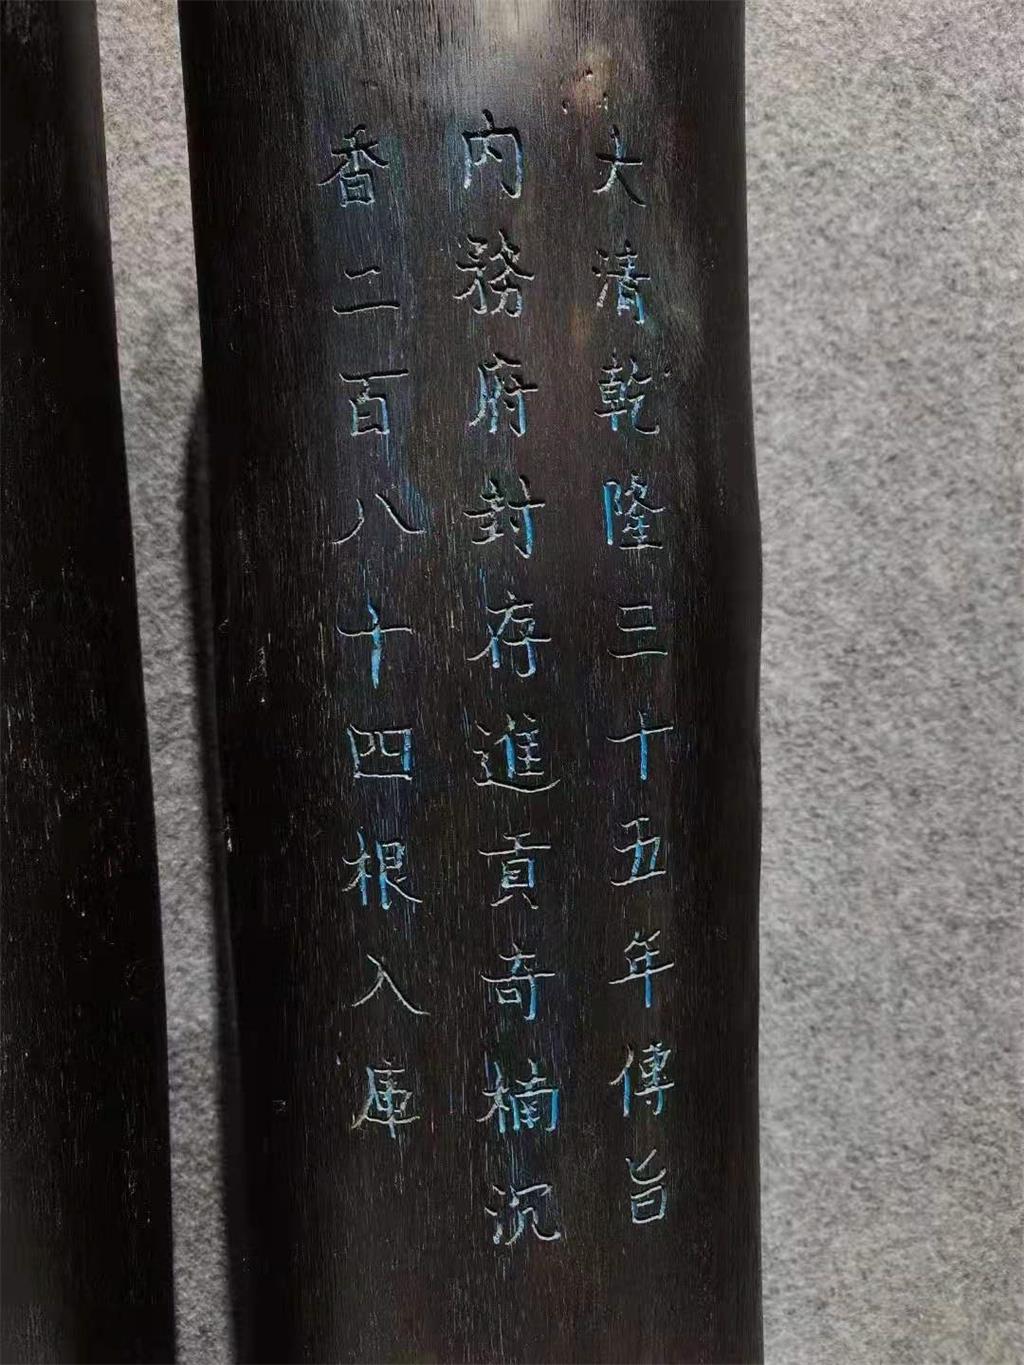 大清乾隆三十五年傳旨
内務府封存進貢奇楠沉
香二百八十四根入庫